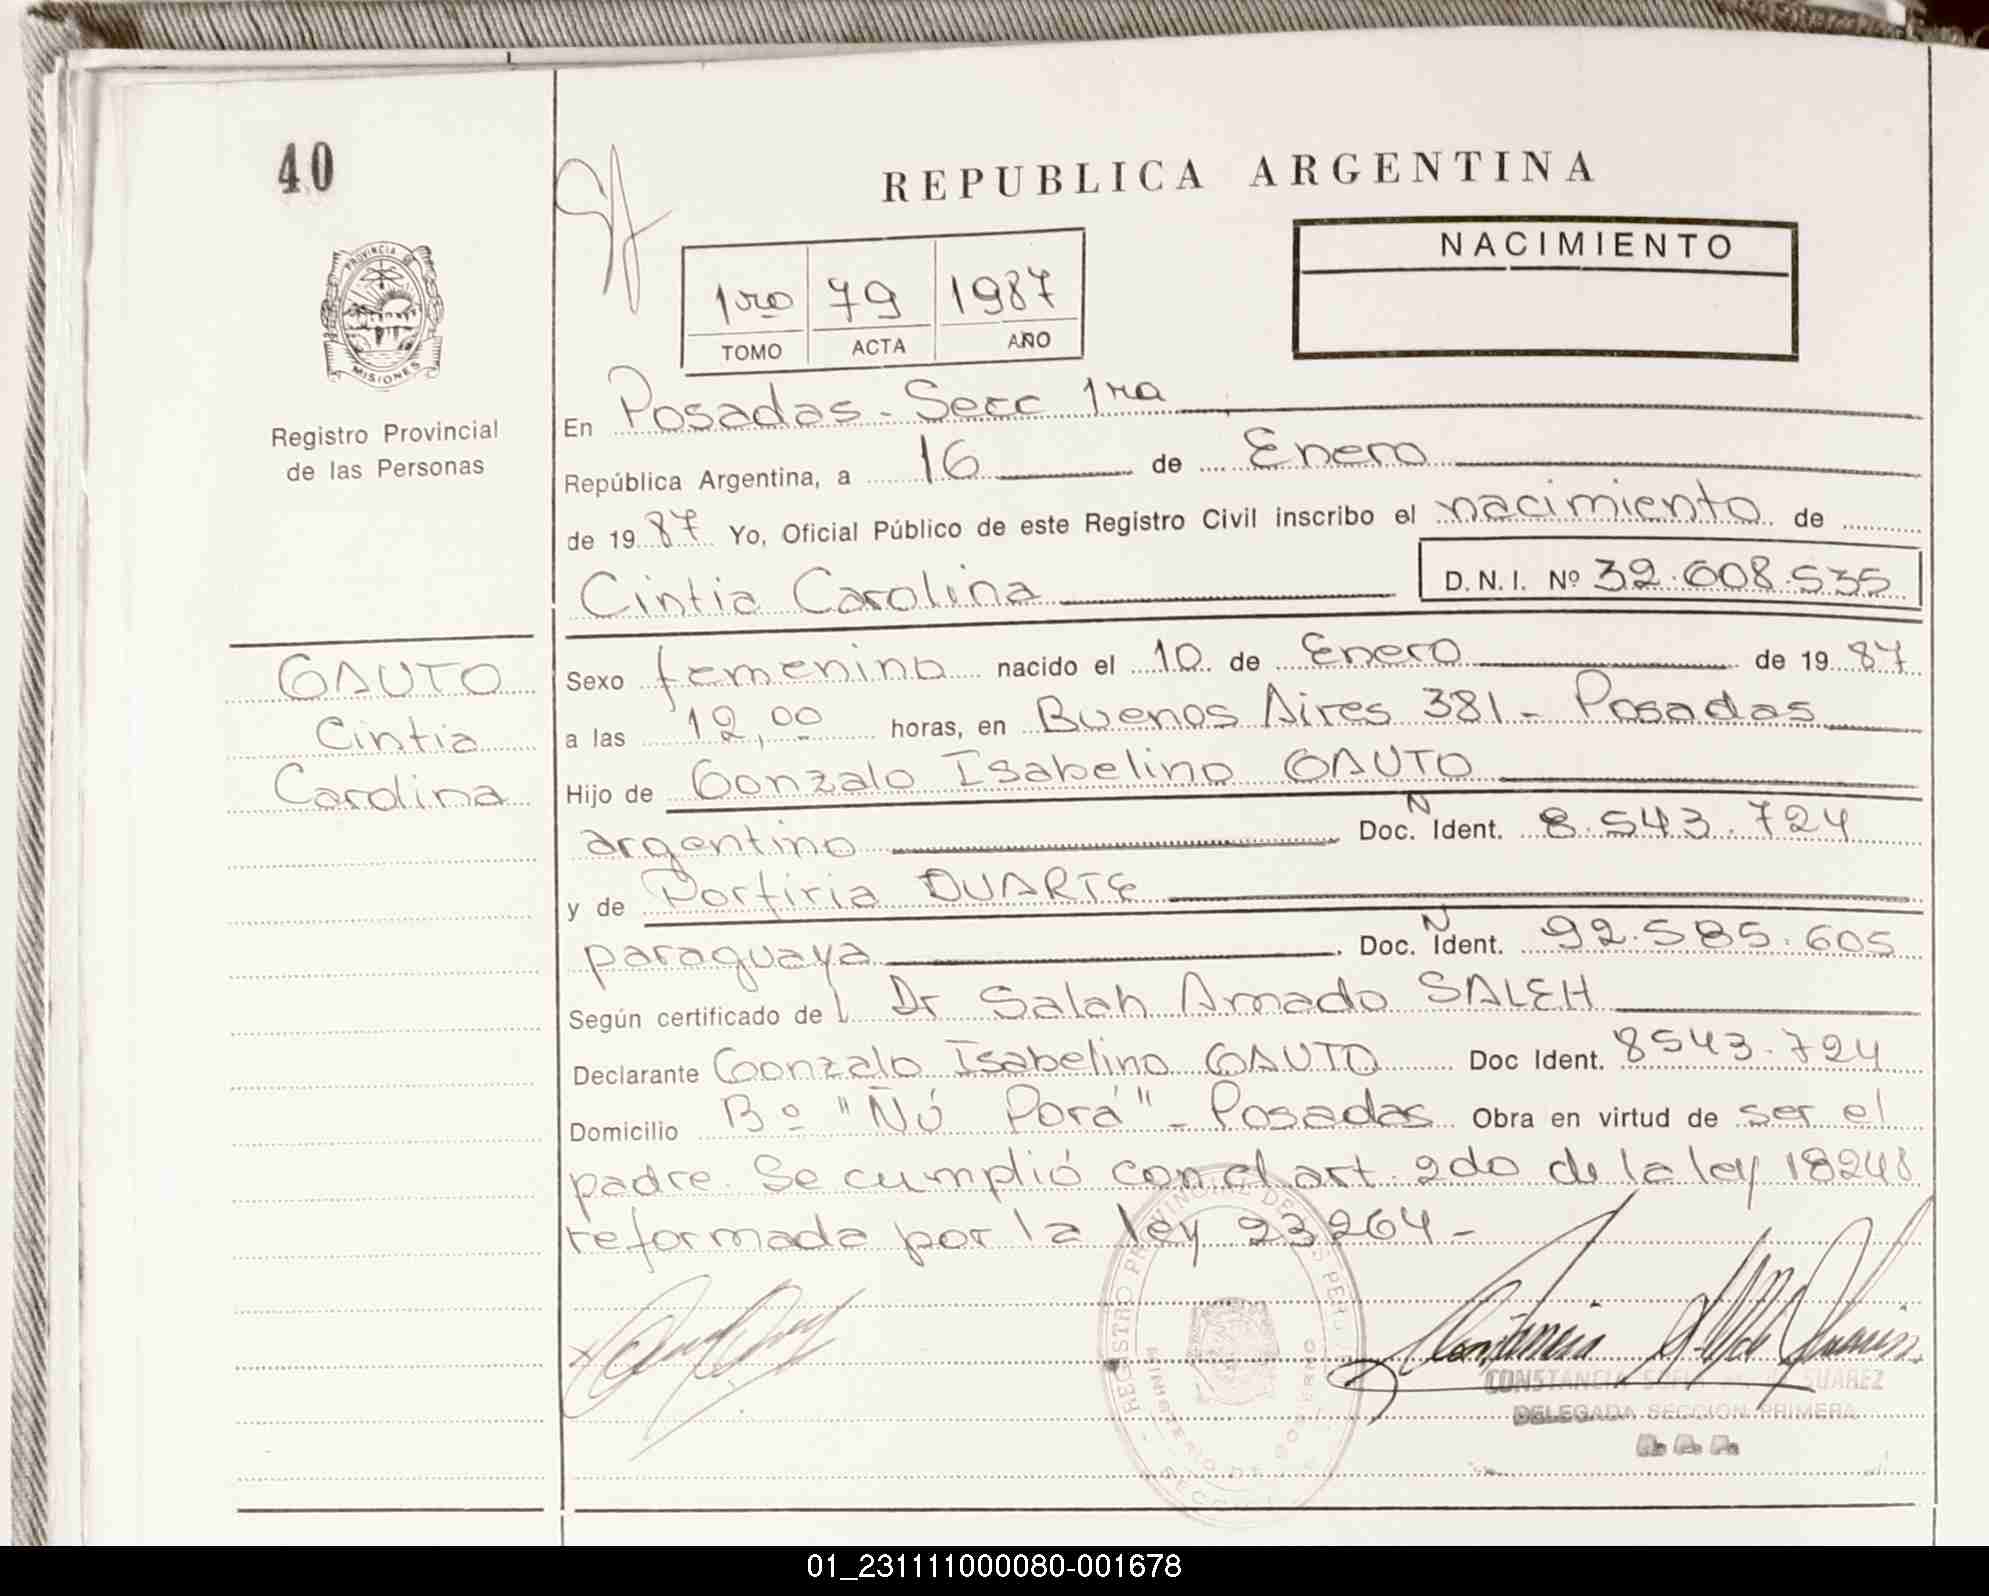 40
REPUBLICA ARGENTINA
NACIMIENTO
1ro 79 1987
TOMO ACTA AÑO
PROVINCIA DE
MISIONES
Registro Provincial
de las Personas
En Posadas - Secc 1ra
República Argentina, a 16 de Enero
de 1987 Yo, Oficial Público de este Registro Civil inscribo el nacimiento de
Cintia Carolina D.N.I. Nº 32.608.535
GAUTO
Cintia
Carolina
Sexo femenino nacido el 10 de Enero de 1987
a las 12,00 horas, en Buenos Aires 381 - Posadas
Hijo de Gonzalo Isabelino GAUTO
argentino Doc. N Ident. 8.543.724
y de Porfiria DUARTE
paraguaya Doc. N Ident. 92.585.605
Según certificado de l Dr Salah Amado SALEH
Declarante Gonzalo Isabelino GAUTO Doc Ident. 8543.724
Domicilio Bº "Ñú Porá" - Posadas Obra en virtud de ser el
padre. Se cumplió con el art. 2do de la ley 18248
reformada por la ley 23264 -
REGISTRO PROVINCIAL DE LAS PERSONAS
MINISTERIO DE GOBIERNO
CONSTANCIA SUAREZ
DELEGADA SECCION PRIMERA
01_231111000080-001678